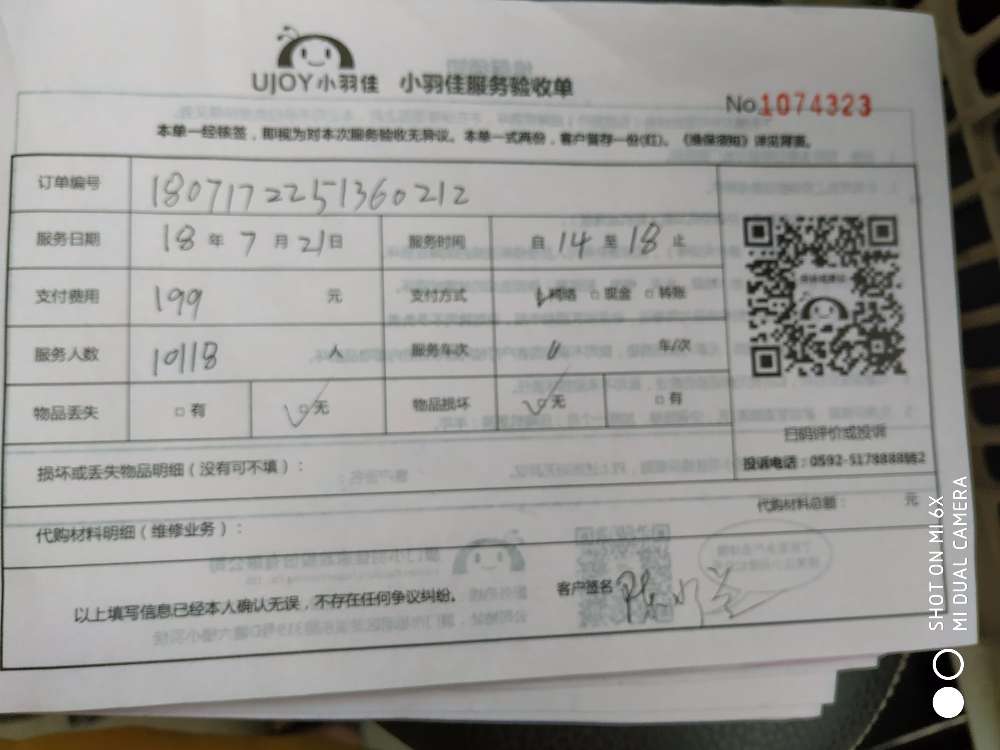 UJOY小羽佳 小羽佳服务验收单
No1074323
本单一经核签，即视为对本次服务验收无异议。本单一式两份，客户留存一份(红)。《维保须知》详见背面。
订单编号 180717225136 0212
服务日期 18 年 7 月 21 日 服务时间 自 14 至 18 止
支付费用 199 元 支付方式 网络 □ 现金 □ 转账
服务人数 10118 人 服务车次 车/次
物品丢失 □ 有 □ 无 物品损坏 □ 无 □ 有
扫码评价或投诉
投诉电话：0592-5178888转2
损坏或丢失物品明细（没有可不填）：
代购材料明细（维修业务）： 代购材料总额： 元
以上填写信息已经本人确认无误，不存在任何争议纠纷。 客户签名
SHOT ON MI 6X
MI DUAL CAMERA